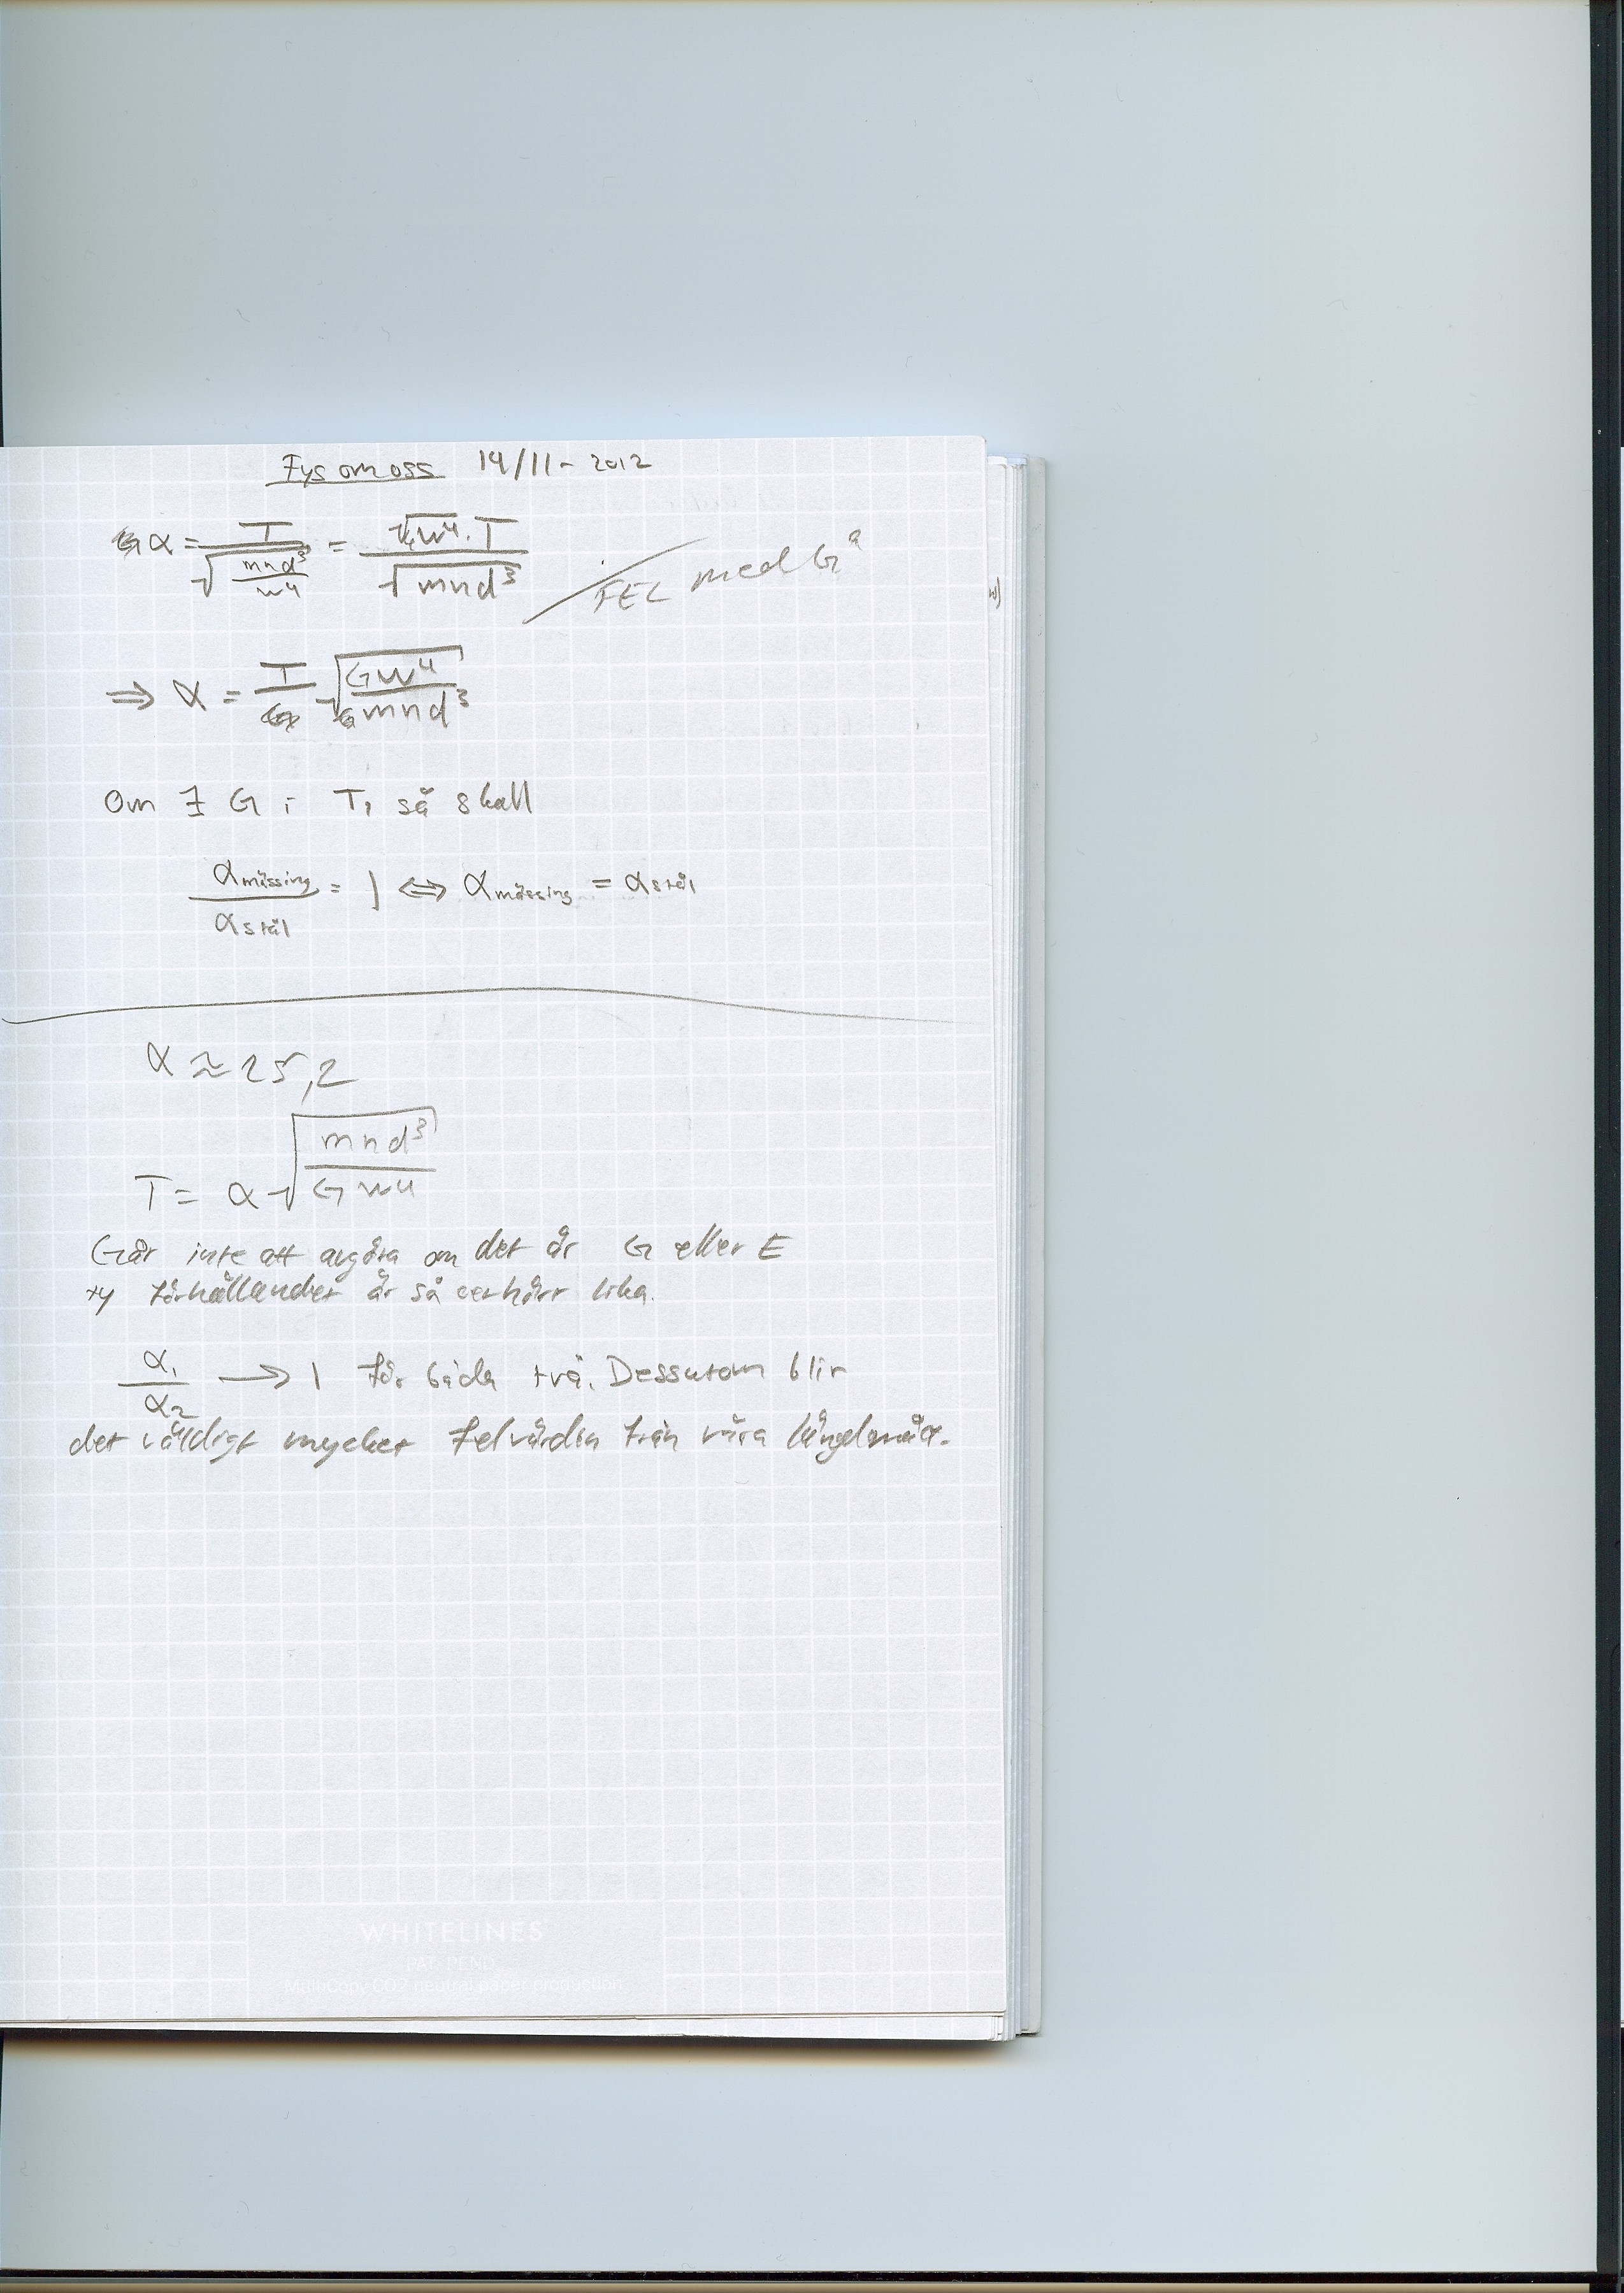 Fys om oss 14/11-2012
α = T / √(mnd³/w⁴) = √w⁴ · T / √mnd³
FEL med G^a
⇒ α = T √(Gw⁴ / mnd³)
Om ∃ G i T, så skall
α mässing / α stål = 1 ⇔ α mässing = α stål
α ≈ 25,2
T = α √(mnd³ / Gw⁴)
Går inte att avgöra om det är G eller E
ty förhållandet är så oerhört lika.
α₁ / α₂ → 1 för båda två. Dessutom blir
det väldigt mycket felvärden från våra längdmått.
WHITELINES
PAT. PEND.
MultiCopy CO2 neutral paper production